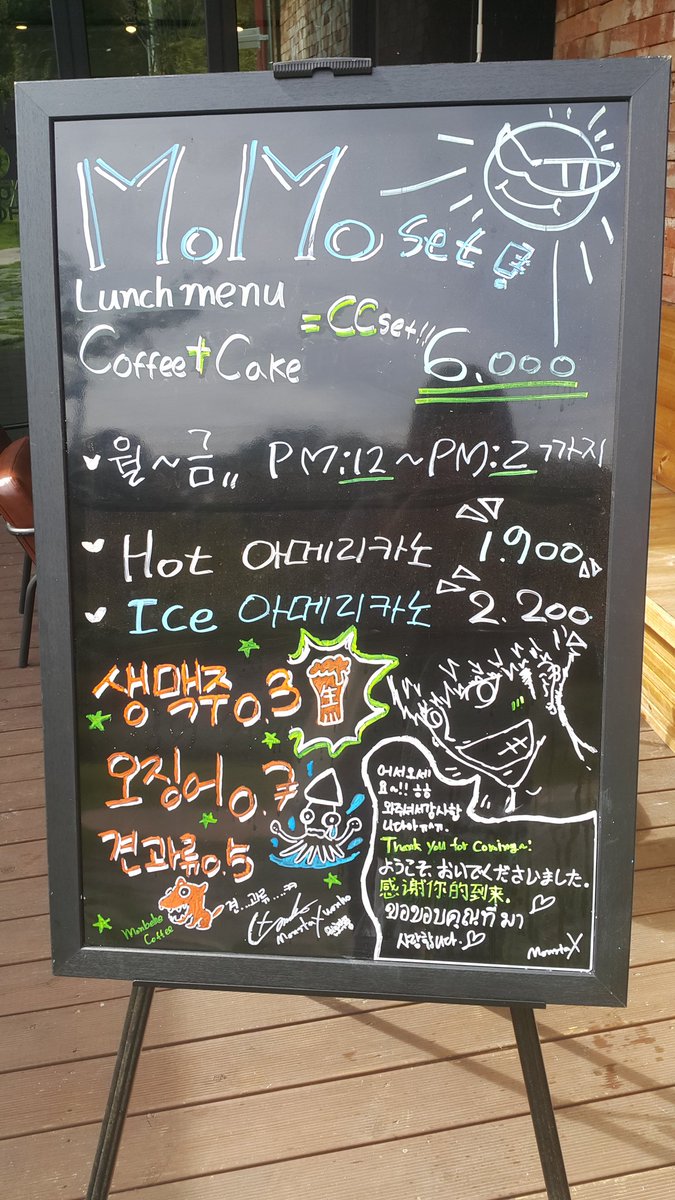 MoMo set
Lunch menu
Coffee + Cake
= CC set!!
6.000
월~금,, PM:12~PM:2 까지
Hot 아메리카노 1.900
Ice 아메리카노 2.200
생맥주 0.3
生
오징어 0.7
견과류 0.5
견...과류...ㅋㅋ
Monbake
Coffee
Monsta X
어서오세
요~!! ㅎㅎ
와주셔서감사합
니다아ㅠ^ㅠ.
Thank you for coming~!
ようこそ、おいでくださいました。
感谢你的到来.
ขอขอบคุณที่มา
사랑합니다.
Monsta X